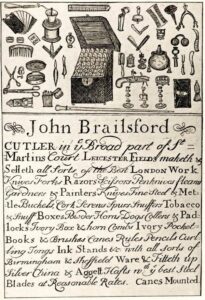 John Brailsford
CUTLER in yᵉ Broad part of Sᵗ
Martins Court LEICESTER FIELDS maketh &
Selleth all Sorts of the Best LONDON Work
Knives Forks Razors Scissors Penknives
Gardners & Painters Knives Fine Steel & Met-
tle Buckels Cork Screws Spurs Snuffers Tobacco
& Snuff Boxes Powder Horns Dogs Collers & Pad-
locks Ivory Box & horn Combs Ivory Pocket
Books & Brushes Canes Rules Pencils Curl-
ing Tongs Ink Stands &c with all sorts of
Birmingham & Sheffield Ware & Fitteth up
Silver China & Aggett Hafts wᵗʰ yᵉ best Steel
Blades at Reasonable Rates. Canes Mounted